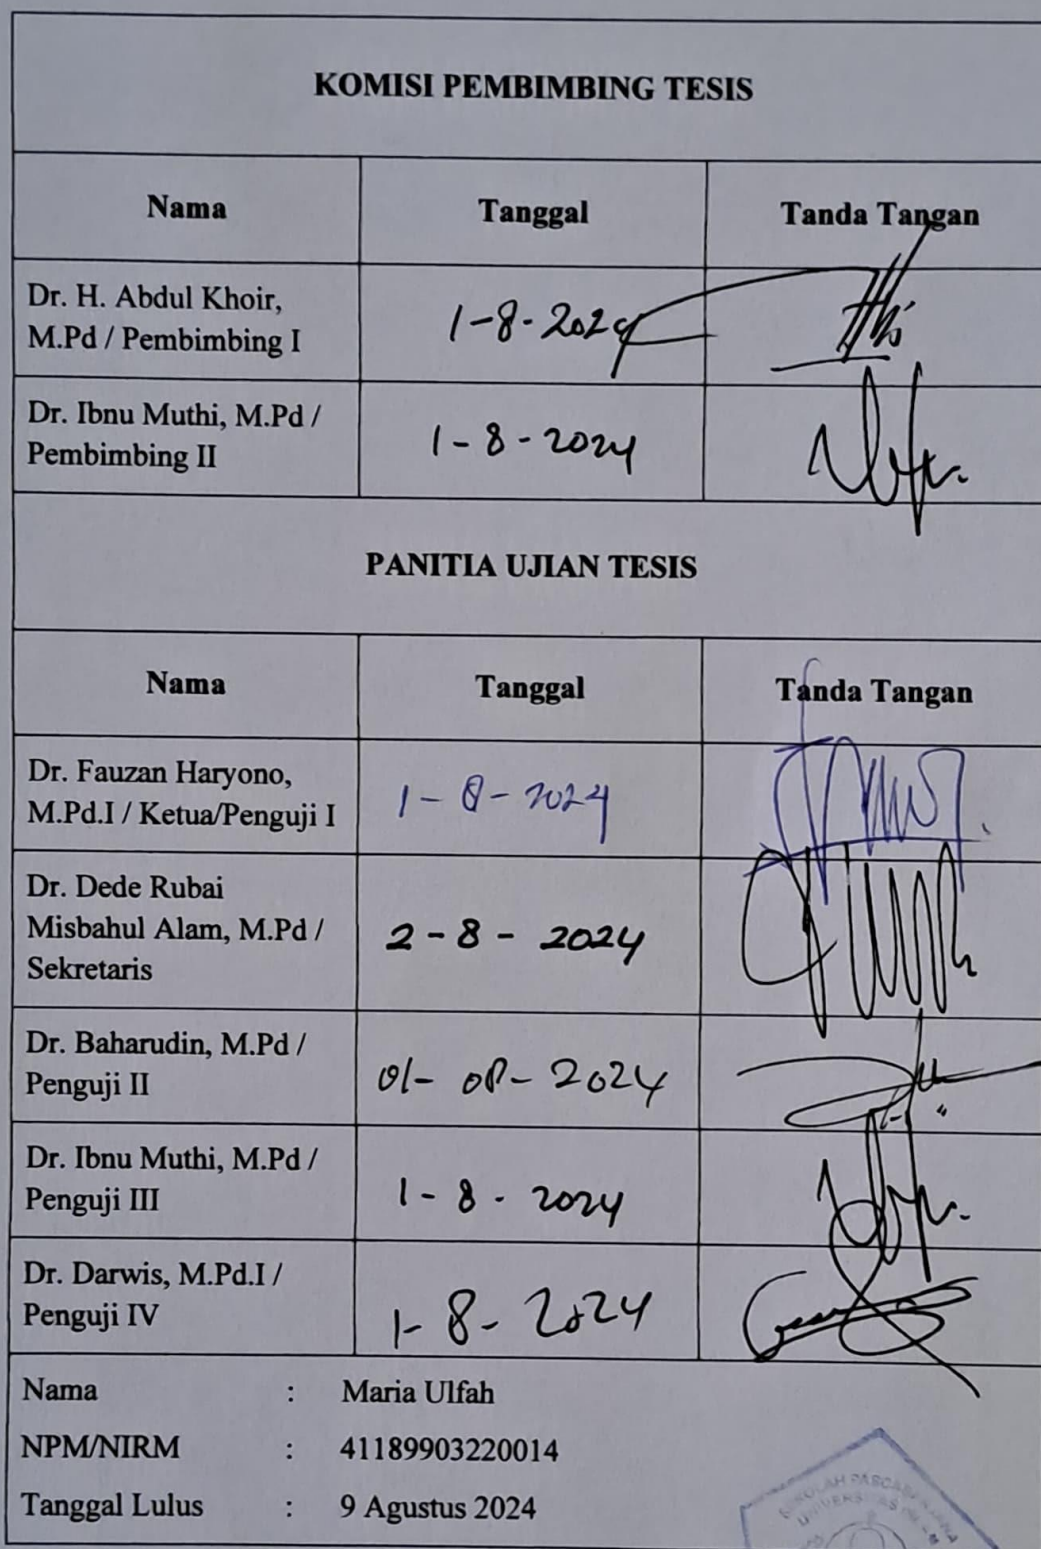 KOMISI PEMBIMBING TESIS
Nama
Tanggal
Tanda Tangan
Dr. H. Abdul Khoir,
M.Pd / Pembimbing I
1-8-2024
Dr. Ibnu Muthi, M.Pd /
Pembimbing II
1-8-2024
PANITIA UJIAN TESIS
Nama
Tanggal
Tanda Tangan
Dr. Fauzan Haryono,
M.Pd.I / Ketua/Penguji I
1-8-2024
Dr. Dede Rubai
Misbahul Alam, M.Pd /
Sekretaris
2-8-2024
Dr. Baharudin, M.Pd /
Penguji II
01-08-2024
Dr. Ibnu Muthi, M.Pd /
Penguji III
1-8-2024
Dr. Darwis, M.Pd.I /
Penguji IV
1-8-2024
Nama : Maria Ulfah
NPM/NIRM : 41189903220014
Tanggal Lulus : 9 Agustus 2024
SEKOLAH PASCASARJANA
UNIVERSITAS ISLAM